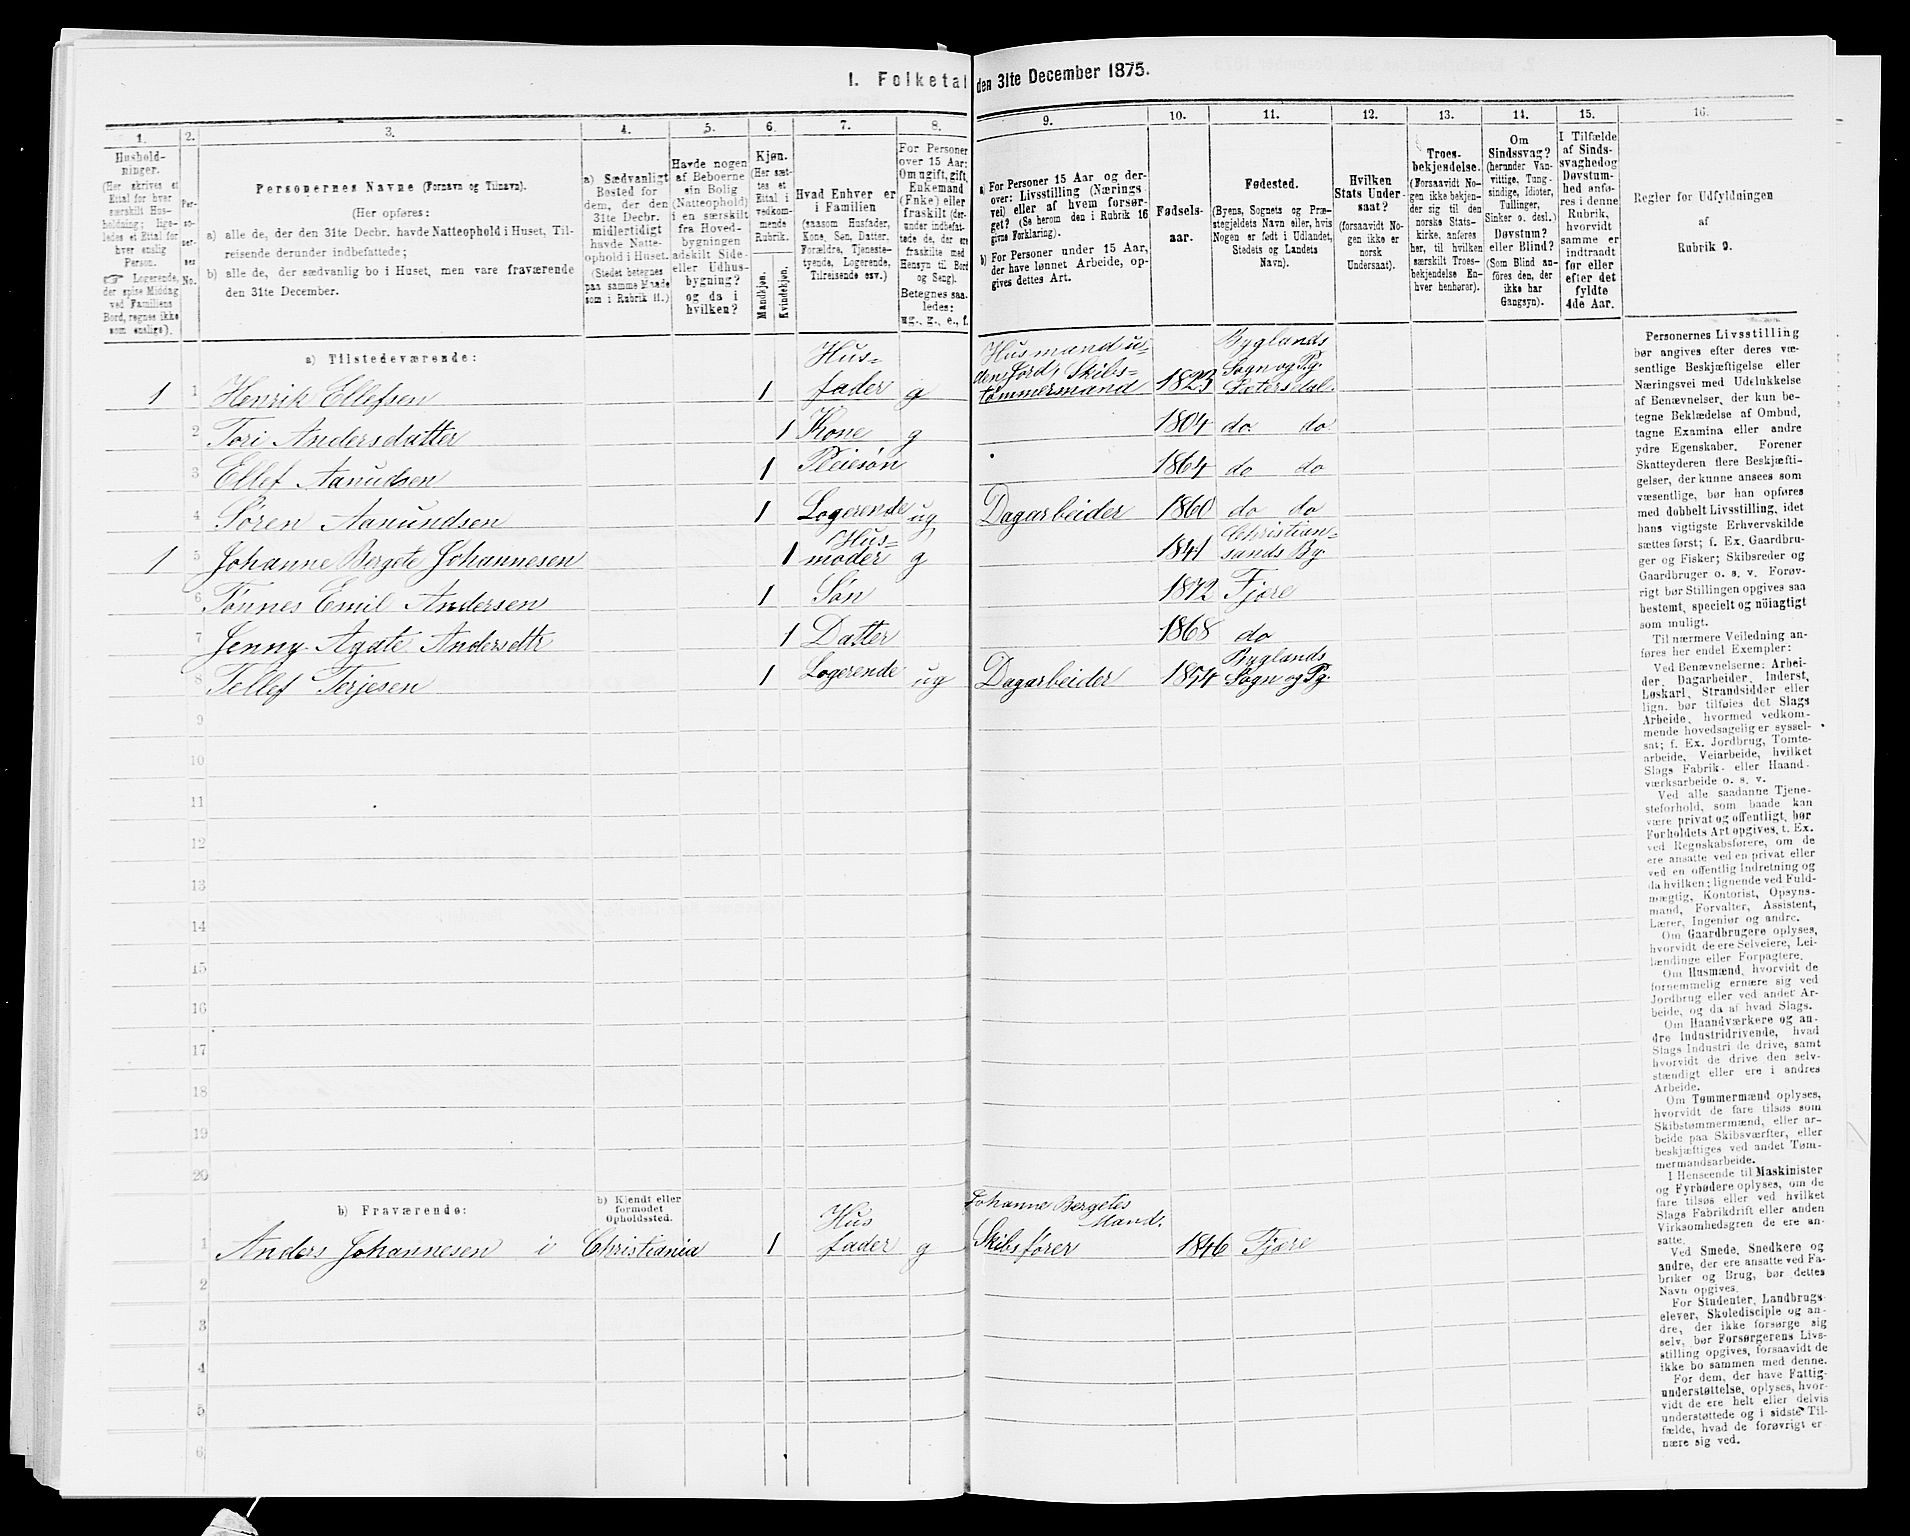 I. Folketal den 31te December 1875.
1. 2. 3. 4. 5. 6. 7. 8. 9. 10. 11. 12. 13. 14. 15. 16.
Hushold-
ninger.
(Her skrives et
Ettal for hver
særskilt Hus-
holdning; lige-
ledes et Ettal for
hver enslig
Person.
☞ Logerende,
der spise Middag
ved Familiens
Bord, regnes ikke
som enslige).
Per-
so-
ner-
nes
No.
Personernes Navne (Fornavn og Tilnavn).
(Her opføres:
a) alle de, der den 31te Decbr. havde Natteophold i Huset, Til-
reisende derunder indbefattede;
b) alle de, der sædvanlig bo i Huset, men vare fraværende
den 31te December.
a) Sædvanligt
Bosted for
dem, der den
31te Decbr.
midlertidigt
havde Natte-
ophold i Huset.
(Stedet betegnes
paa samme Maade
som i Rubrik 11.)
Havde nogen
af Beboerne
sin Bolig
(Natteophold)
i en særskilt
fra Hoved-
bygningen
adskilt Side-
eller Udhus-
bygning?
og da i
hvilken?
Kjøn.
(Her sæt-
tes et
Ettal i
vedkom-
mende
Rubrik.
Mandkjøn.
Kvindekjøn.
Hvad Enhver er
i Familien
(saasom Husfader,
Kone, Søn, Datter,
Forældre, Tjeneste-
tyende, Logerende,
Tilreisende osv.)
For Personer
over 15 Aar:
Om ugift, gift,
Enkemand
(Enke) eller
fraskilt (der-
under indbefat-
tede de, der ere
fraskilte med
Hensyn til Bord
og Seng).
Betegnes saa-
ledes:
ug., g., e., f.
a) For Personer 15 Aar og der-
over: Livsstilling (Nærings
vei) eller af hvem forsør-
get? (Se herom den i Rubrik 16
givne Forklaring).
b) For Personer under 15 Aar,
der have lønnet Arbeide, op-
gives dettes Art.
Fødsels-
aar.
Fødested.
(Byens, Sognets og Præ-
stegjeldets Navn eller, hvis
Nogen er født i Udlandet,
Stedets og Landets
Navn).
Hvilken
Stats Under-
saat?
(forsaavidt No-
gen ikke er
norsk
Undersaat).
Troes-
bekjendelse.
(Forsaavidt No-
gen ikke bekjen-
der sig til den
norske Stats-
kirke, anføres
her, til hvilken
særskilt Troes-
bekjendelse En-
hver henhører).
Om
Sindssvag?
(herunder Van-
vittige, Tung-
sindige, Idioter,
Tullinger,
Sinker o. desl.)
Døvstum?
eller Blind?
(Som Blind an-
føres den, der
ikke har
Gangsyn).
I Tilfælde
af Sinds-
svaghed og
Døvstum-
hed anfø-
res i denne
Rubrik,
hvorvidt
samme er
indtraadt
før eller
efter det
fyldte
4de Aar.
Regler for Udfyldningen
af
Rubrik 9.
a) Tilstedeværende:
1 1 Henrik Ellefsen 1 Hus-
fader g Husmand u-
den Jord, Skibs-
tømmermand 1823 Byglands
Sogn og Pg.
Sætersdal.
2 Tori Andersdatter 1 Kone g 1804 do. do
3 Ellef Aanudsen 1 Pleiesøn 1864 do do
4 Søren Aanundsen 1 Logerende ug Dagarbeider 1860 do do
1 5 Johanne Bergete Johannesen 1 Hus-
moder g 1841 Christian-
sands By.
6 Tønnes Emil Andersen 1 Søn 1872 Fjære
7 Jenny Agate Andersdtr 1 Datter 1868 do
8 Tellef Terjesen 1 Logerende ug Dagarbeider 1854 Byglands
Sogn og Pg.
9
10
11
12
13
14
15
16
17
18
19
20
b) Fraværende:
b) Kjendt eller
formodet
Opholdssted.
1 Anders Johannesen i Christiania 1 Hus
fader g Johanne Bergetes
Mand.
Skibsfører 1846 Fjære
2
3
4
5
6
Personernes Livsstilling
bør angives efter deres væ-
sentlige Beskjæftigelse eller
Næringsvei med Udelukkelse
af Benævnelser, der kun be-
tegne Beklædelse af Ombud,
tagne Examina eller andre
ydre Egenskaber. Forener
Skatteyderen flere Beskjæfti-
gelser, der kunne ansees som
væsentlige, bør han opføres
med dobbelt Livsstilling, idet
hans vigtigste Erhvervskilde
sættes først; f. Ex. Gaardbru-
ger og Fisker; Skibsreder og
Gaardbruger o. s. v. Forøv-
rigt bør Stillingen opgives saa
bestemt, specielt og nöiagtigt
som muligt.
Til nærmere Veiledning an-
føres her endel Exempler:
Ved Benævnelserne: Arbei-
der, Dagarbeider, Inderst,
Løskarl, Strandsidder eller
lign. bør tilføies det Slags
Arbeide, hvormed vedkom-
mende hovedsagelig er syssel-
sat; f. Ex. Jordbrug, Tomte-
arbeide, Veiarbeide, hvilket
Slags Fabrik- eller Haand-
værksarbeide o. s. v.
Ved alle saadanne Tjene-
steforhold, som baade kan
være privat og offentligt, bør
Forholdets Art opgives, t. Ex.
ved Regnskabsførere, om de
ere ansatte ved en privat eller
ved en offentlig Indretning og
da hvilken; lignende ved Fuld-
mægtig, Kontorist, Opsyns-
mand, Forvalter, Assistent,
Lærer, Ingeniør og andre.
Om Gaardbrugere oplyses,
hvorvidt de ere Selveiere, Lei-
lændinge eller Forpagtere.
Om Husmænd, hvorvidt de
fornemmelig ernære sig ved
Jordbrug eller ved andet Ar-
beide, og da af hvad Slags.
Om Haandværkere og an-
dre Industridrivende, hvad
Slags Industri de drive, samt
hvorvidt de drive den selv-
stændigt eller ere i andres
Arbeide.
Om Tømmermænd oplyses,
hvorvidt de fare tilsøs som
Skibstømmermænd, eller ar-
beide paa Skibsværfter, eller
beskjæftiges ved andet Tøm-
mermandsarbeide.
I Henseende til Maskinister
og Fyrbødere oplyses, om de
fare tilsøs eller ved hvilket
Slags Fabrikdrift eller anden
Virksomhedsgren de ere an-
satte.
Ved Smede, Snedkere og
andre, der ere ansatte ved Fa-
briker og Brug, bør dettes
Navn opgives.
For Studenter, Landbrugs-
elever, Skoledisciple og an-
dre, der ikke forsørge sig
selv, bør Forsørgerens Livs-
stilling opgives, forsaavidt de
ikke bo sammen med denne.
For dem, der have Fattig-
understøttelse, oplyses, hvor-
vidt de ere helt eller delvis
understøttede og i sidste Til-
fælde, hvad de forøvrigt er-
nære sig ved.